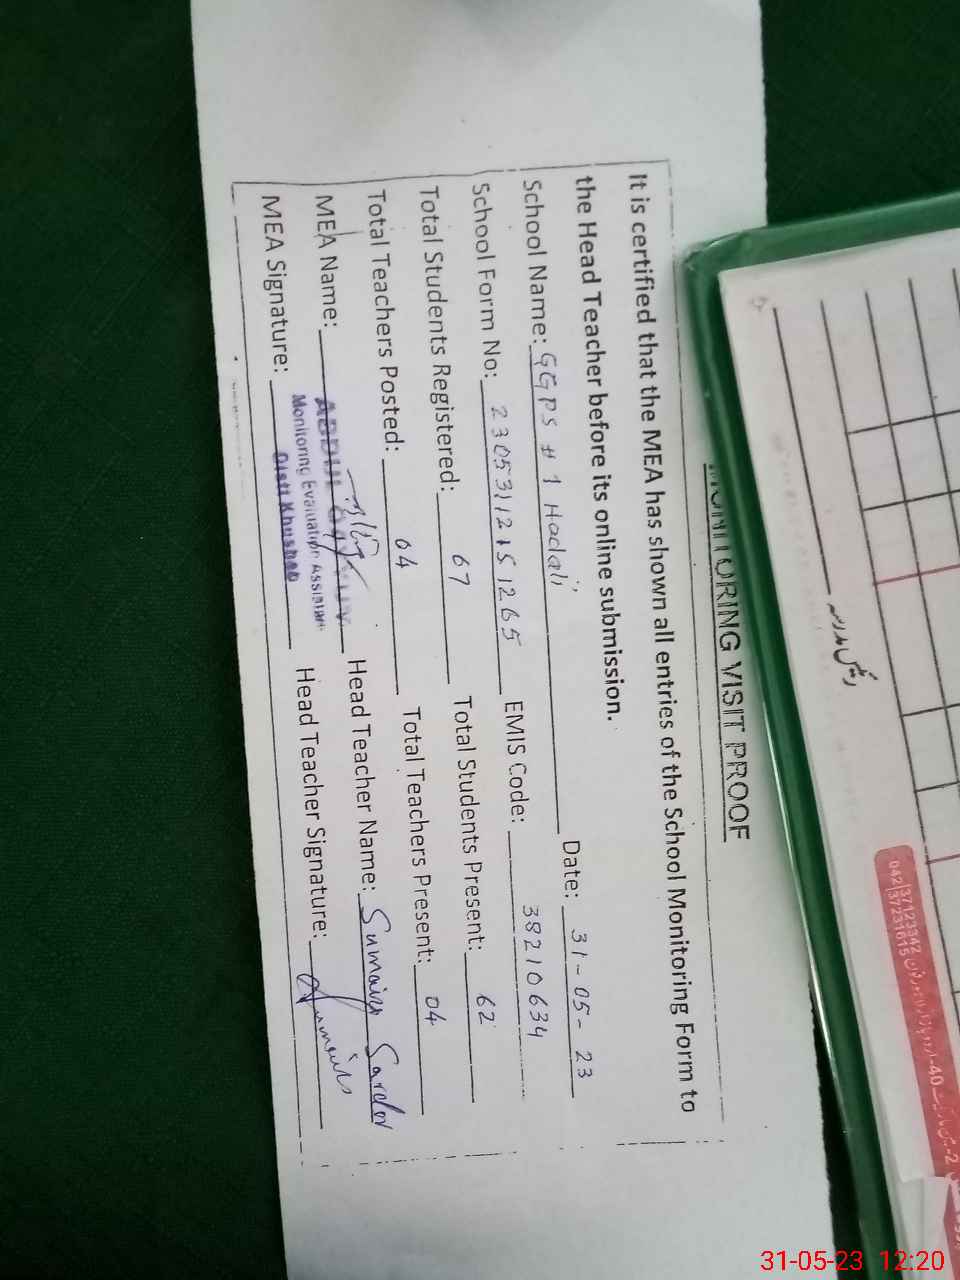 MONITORING VISIT PROOF
It is certified that the MEA has shown all entries of the School Monitoring Form to
the Head Teacher before its online submission.
School Name: GGPS # 1 Hadali Date: 31-05-23
School Form No: 23053112151265 EMIS Code: 38210634
Total Students Registered: 67 Total Students Present: 62
Total Teachers Posted: 04 Total Teachers Present: 04
MEA Name: ABDUL Head Teacher Name: Sumaira Sardar
Monitoring Evaluation Assistant
MEA Signature: Distt Khushab Head Teacher Signature: Sumaira
رئیس مدرسہ
042)37123342
042)37231615
31-05-23 12:20